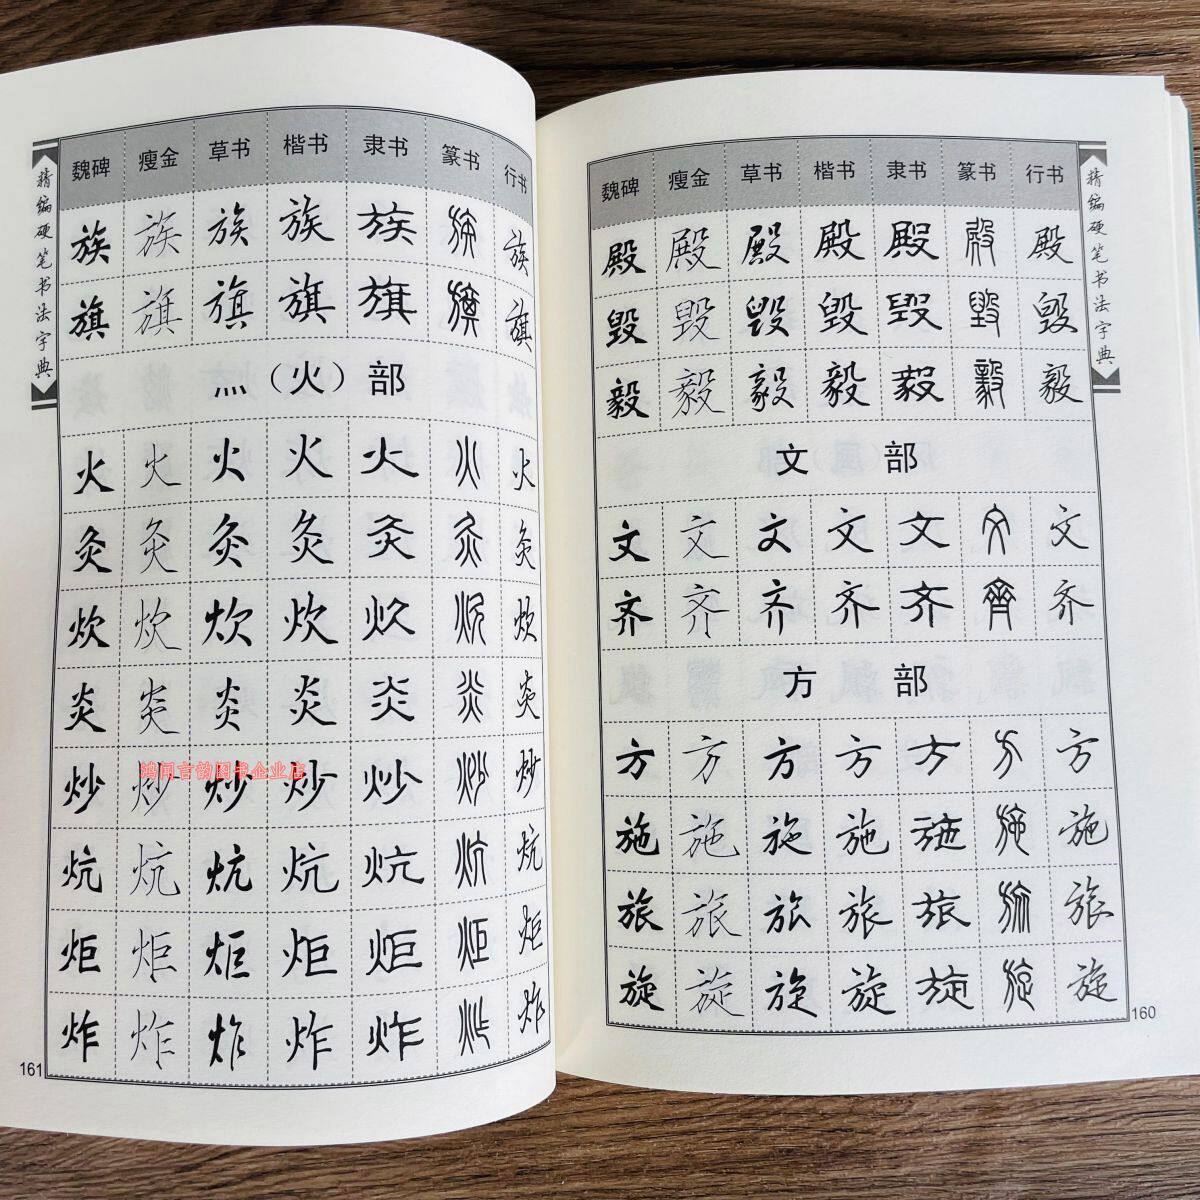 精编硬笔书法字典
魏碑 瘦金 草书 楷书 隶书 篆书 行书
族 族 族 族 族 族 族
旗 旗 旗 旗 旗 旗 旗
灬（火）部
火 火 火 火 火 火 火
灸 灸 灸 灸 灸 灸 灸
炊 炊 炊 炊 炊 炊 炊
炎 炎 炎 炎 炎 炎 炎
鸿闻言韵图书企业店
炒 炒 炒 炒 炒 炒 炒
炕 炕 炕 炕 炕 炕 炕
炬 炬 炬 炬 炬 炬 炬
炸 炸 炸 炸 炸 炸 炸
161
魏碑 瘦金 草书 楷书 隶书 篆书 行书
殿 殿 殿 殿 殿 殿 殿
毁 毁 毁 毁 毁 毁 毁
毅 毅 毅 毅 毅 毅 毅
文 部
文 文 文 文 文 文 文
齐 齐 齐 齐 齐 齊 齐
方 部
方 方 方 方 方 方 方
施 施 施 施 施 施 施
旅 旅 旅 旅 旅 旅 旅
旋 旋 旋 旋 旋 旋 旋
精编硬笔书法字典
160